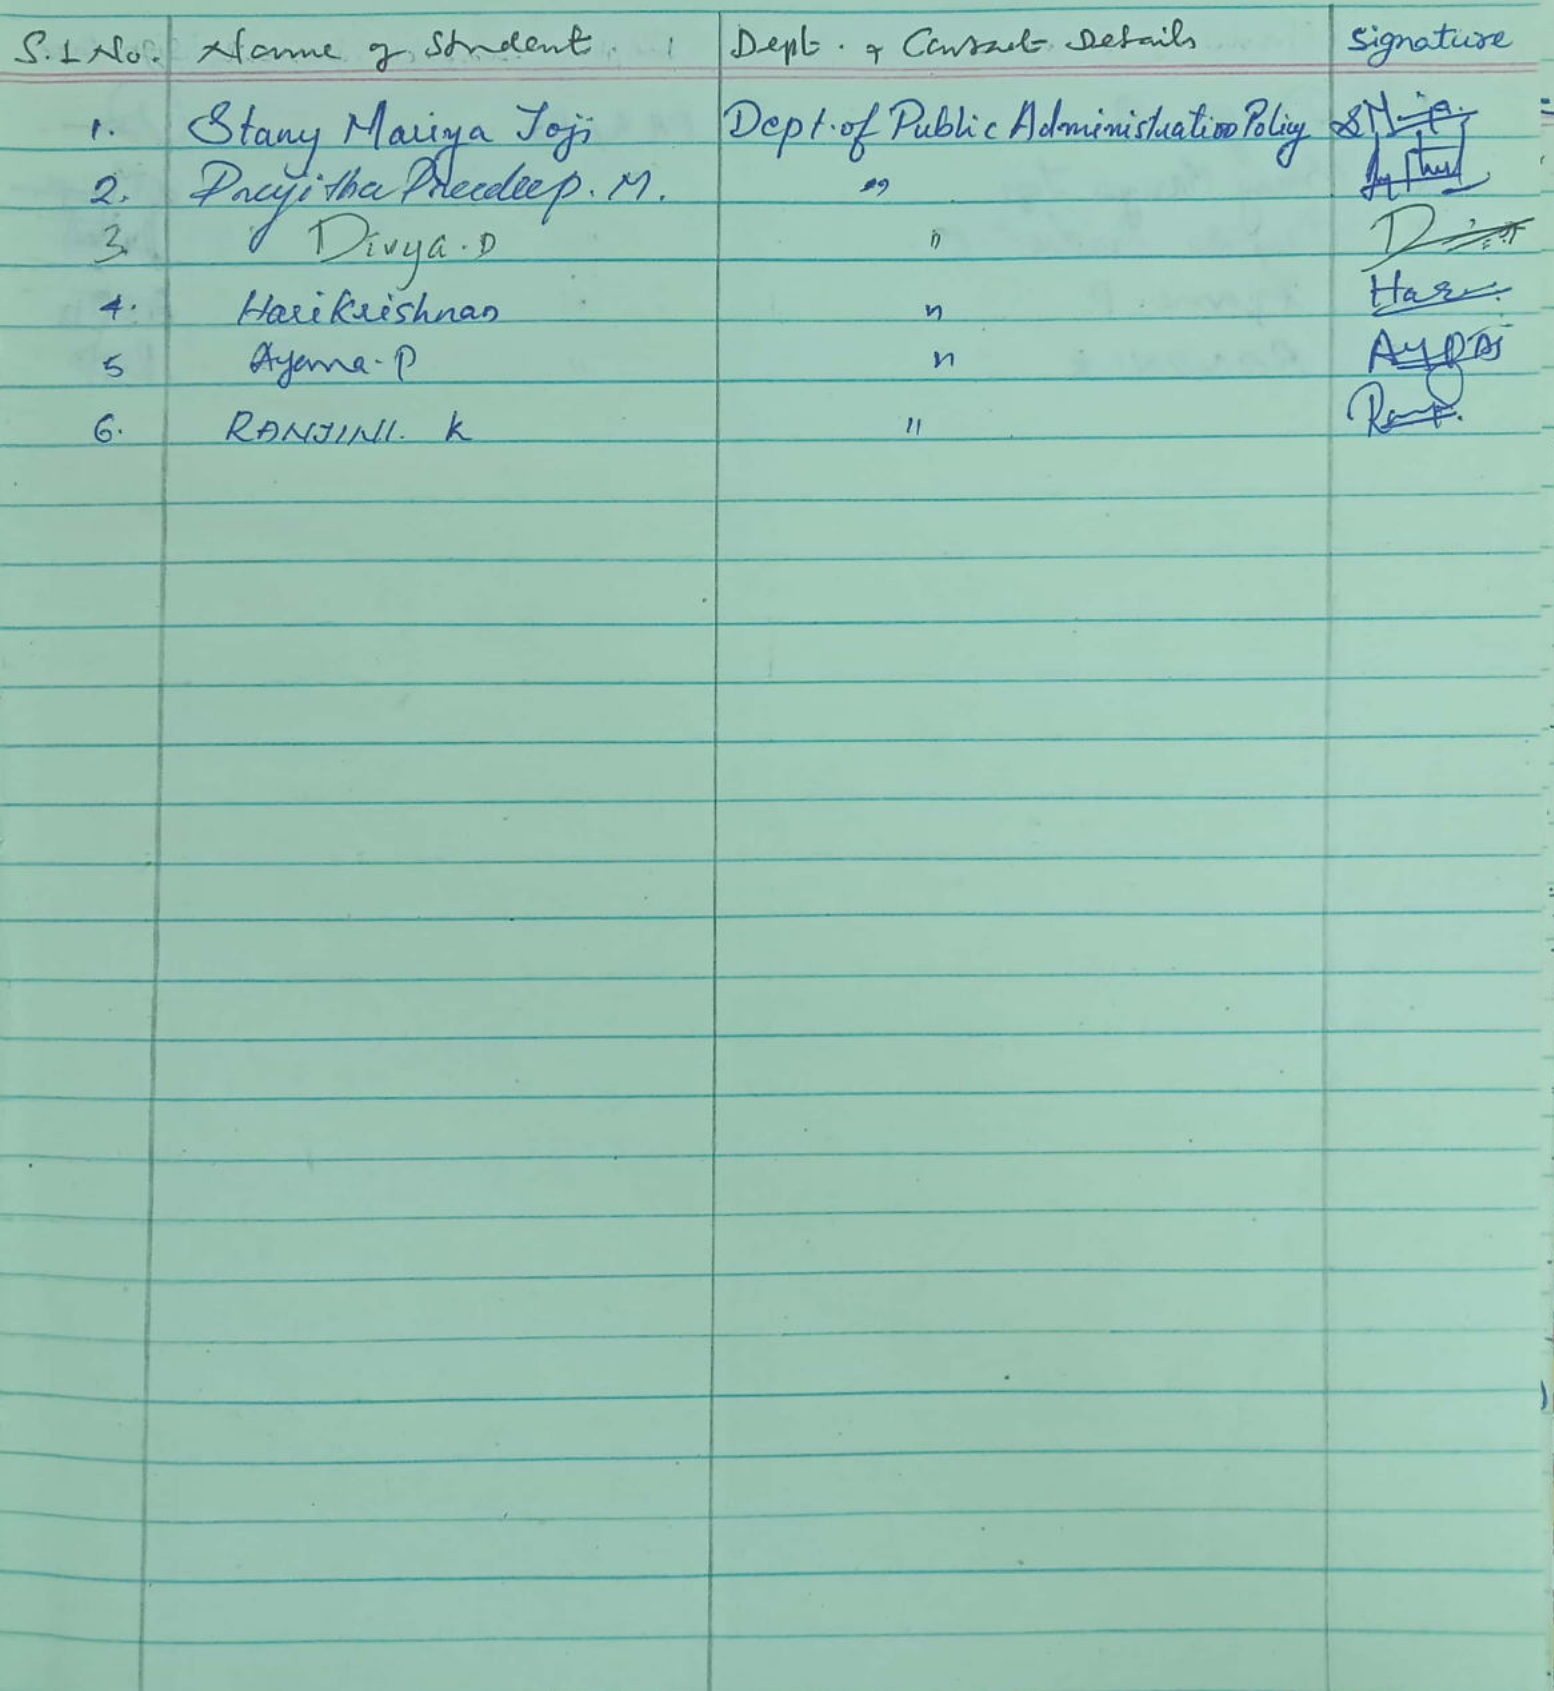 S.L No. Name of Student Dept. & Contact Details Signature
1. Stany Mariya Joji Dept. of Public Administration Policy
2. Prajitha Pradeep. M. "
3. Divya. D "
4. Harikrishnan " Hari
5 Ayona. P "
6. RANJINI. K "